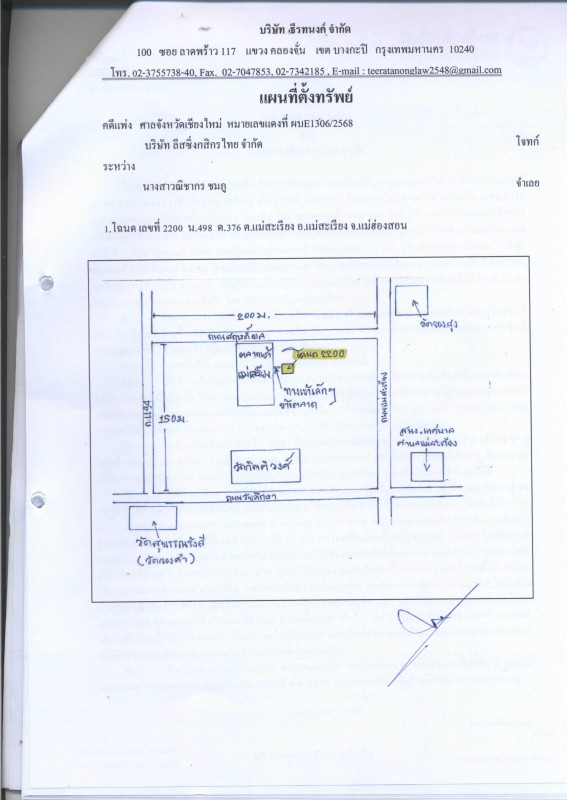 บริษัท ธีรทนงค์ จำกัด
100 ซอย ลาดพร้าว 117 แขวง คลองจั่น เขต บางกะปิ กรุงเทพมหานคร 10240
โทร. 02-3755738-40, Fax. 02-7047853, 02-7342185 , E-mail : teeratanonglaw2548@gmail.com
แผนที่ตั้งทรัพย์
คดีแพ่ง ศาลจังหวัดเชียงใหม่ หมายเลขแดงที่ ผบE1306/2568
บริษัท ลีสซิ่งกสิกรไทย จำกัด โจทก์
ระหว่าง
นางสาวณิชากร ชมภู จำเลย
1.โฉนด เลขที่ 2200 น.498 ต.376 ต.แม่สะเรียง อ.แม่สะเรียง จ.แม่ฮ่องสอน
200 ม.
วัดจองสูง
ตลาดเช้า
แม่สะเรียง
โฉนด 2200
ทางเข้าเล็กๆ
ข้างตลาด
150 ม.
ถนนแม่สะเรียง
สนง.เทศบาล
ตำบลแม่สะเรียง
วัดกิตติวงศ์
ถนนวัยศึกษา
วัดสุพรรณรังสี
(วัดจองคำ)